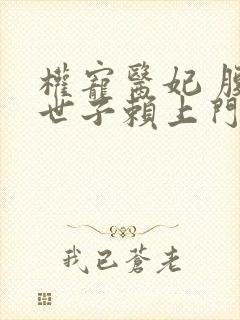 權寵醫妃
世子賴上門
我已蒼老